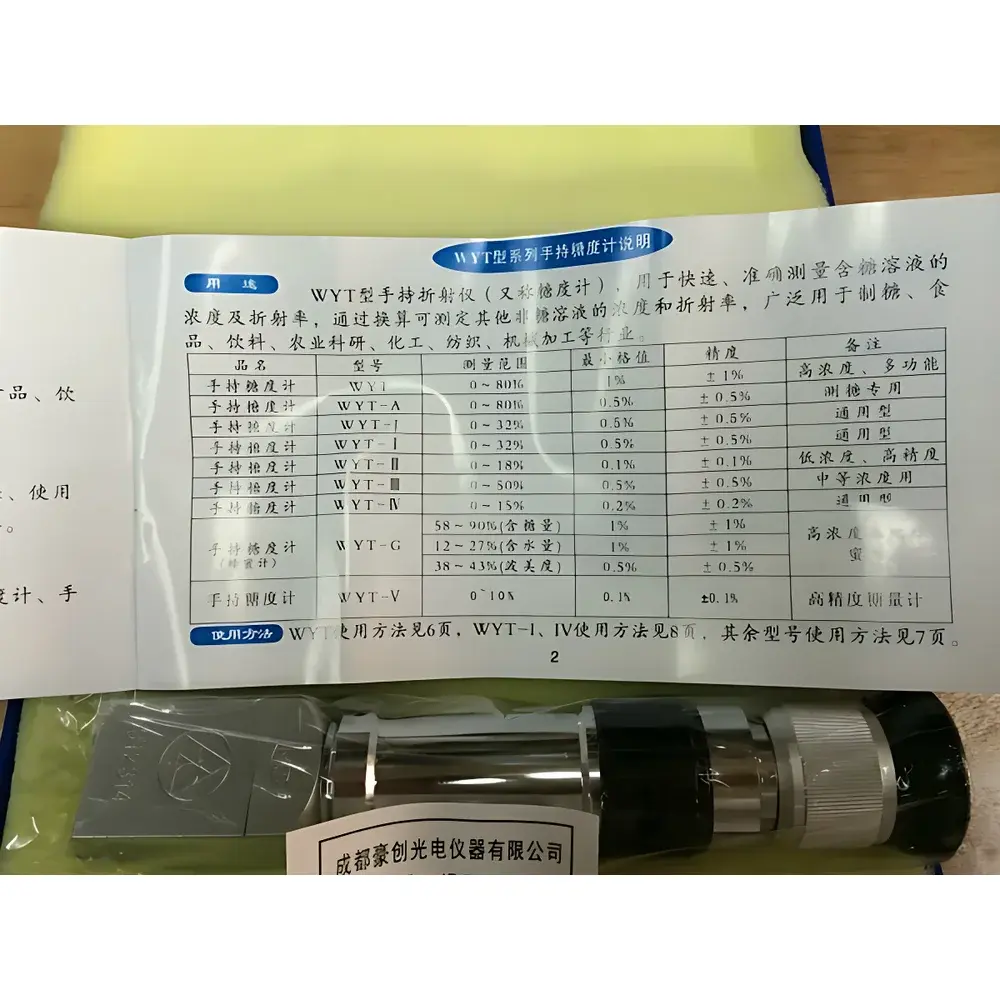 WYT型系列手持糖度计说明
用途
WYT型手持折射仪（又称糖度计），用于快速、准确测量含糖溶液的
浓度及折射率，通过换算可测定其他非糖溶液的浓度和折射率，广泛用于制糖、食
品、饮料、农业科研、化工、纺织、机械加工等行业。
品名 型号 测量范围 最小格值 精度 备注
手持糖度计 WYT 0～80% 1% ±1% 高浓度、多功能
手持糖度计 WYT-A 0～80% 0.5% ±0.5% 专用
手持糖度计 WYT-J 0～32% 0.5% ±0.5% 通用型
手持糖度计 WYT-Ⅰ 0～32% 0.5% ±0.5% 通用型
手持糖度计 WYT-Ⅱ 0～18% 0.1% ±0.1% 低浓度、高精度
手持糖度计 WYT-Ⅲ 0～50% 0.5% ±0.5% 中等浓度用
手持糖度计 WYT-Ⅳ 0～15% 0.2% ±0.2% 通用型
手持糖度计 WYT-G 58～90%(含糖量) 1% ±1% 高浓度
（蜂蜜计） 12～27%(含水量) 1% ±1% 蜜
38～43%(波美度) 0.5% ±0.5%
手持糖度计 WYT-V 0~10% 0.1% ±0.1% 高精度糖量计
使用方法 WYT使用方法见6页，WYT-I、IV使用方法见8页，其余型号使用方法见7页。
2
品、饮
、使用
。
度计、手
成都豪创光电仪器有限公司